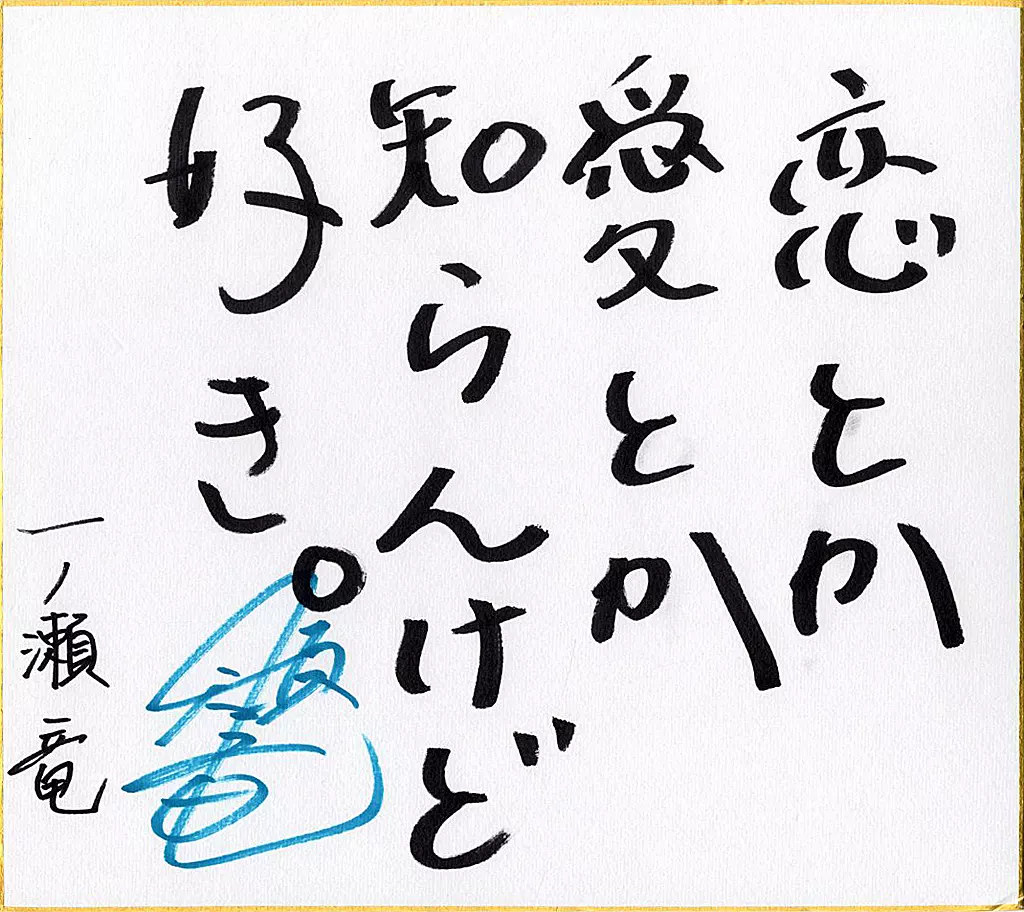 恋とか
愛とか
知らんけど
好き。
一ノ瀬竜